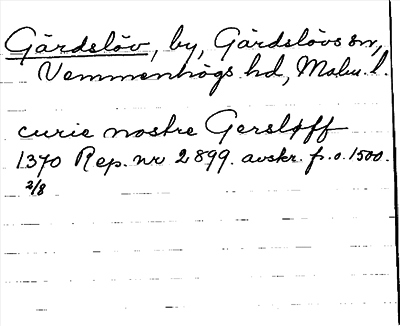 Gärdslöv, by, Gärdslövs sn,
Vemmenhögs hd, Malm. l.
curie nostre Gersløff
1370 Rep. nr 2899. avskr. f. o. 1500.
2/8